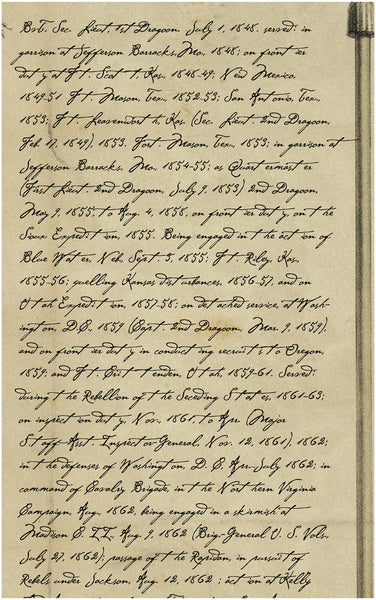 Bvt. Sec. Lieut. 1st Dragoon, July 1, 1848. served: in
garrison at Jefferson Barracks, Mo., 1848; on frontier
duty at Ft. Scott, Kas. 1848-49; New Mexico,
1849-51 Ft. Mason, Tex., 1852-53; San Antonio, Tex.,
1853; Ft. Leavenworth, Kas (Sec. Lieut. 2nd Dragoon,
Feb. 17, 1849), 1853. Fort. Mason, Tex., 1853; in garrison at
Jefferson Barracks, Mo. 1854-55; as Quartermaster
(First Lieut. 2nd Dragoon, July 9, 1853) 2nd Dragoon,
May 9, 1855, to Aug. 4, 1858, on frontier duty, on the
Sioux Expedition, 1855. Being engaged in the action of
Blue Water, Neb. Sept. 3, 1855; Ft. Riley, Kas.,
1855-56; quelling Kansas disturbances, 1856-57, and on
Utah Expedition, 1857-58; on detached service, at Wash-
ington, D.C. 1859 (Capt. 2nd Dragoon, Mar. 9, 1859),
and on frontier duty in conducting recruits to Oregon,
1859; and Ft. Crittenden, Utah, 1859-61. Served:
during the Rebellion of the Seceding States, 1861-63;
on inspection duty, Nov., 1861, to Apr. (Major
Staff-Asst. Inspector General, Nov. 12, 1861), 1862;
in the defenses of Washington, D. C, Apr.-July 1862; in
command of Cavalry Brigade, in the Northern Virginia
Campaign, Aug. 1862, being engaged in a skirmish at
Madison C. II, Aug. 9, 1862 (Brig-General U. S. Vols.
July 27, 1862); passage of the Rapidan, in pursuit of
Rebels under Jackson, Aug. 12, 1862 ; action at Kelly